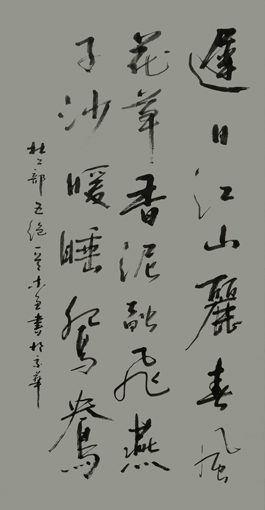 遲日江山麗春風
花草香泥融飛燕
子沙暖睡鴛鴦
杜工部五絕一首
書於京華